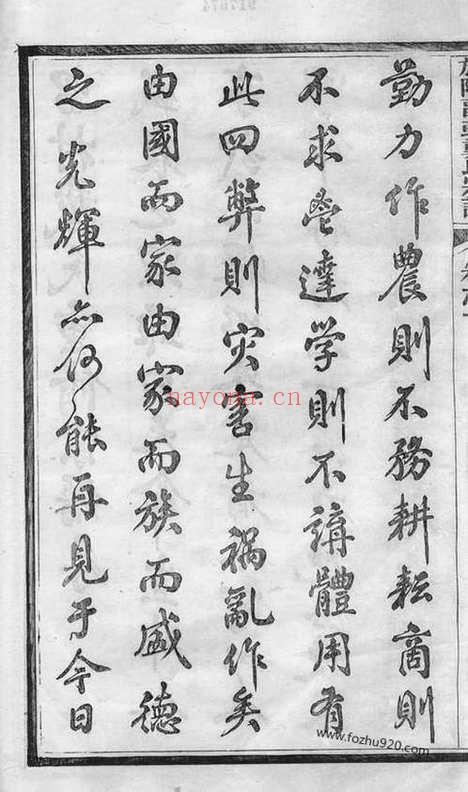 勤力作農則不務耕耘商則
不求達学則不講體用有
此四弊則灾害生禍亂作矣
由國而家由家而族而盛德
之光輝亦何能再見于今日
hayona.cn
www.fozhu920.com